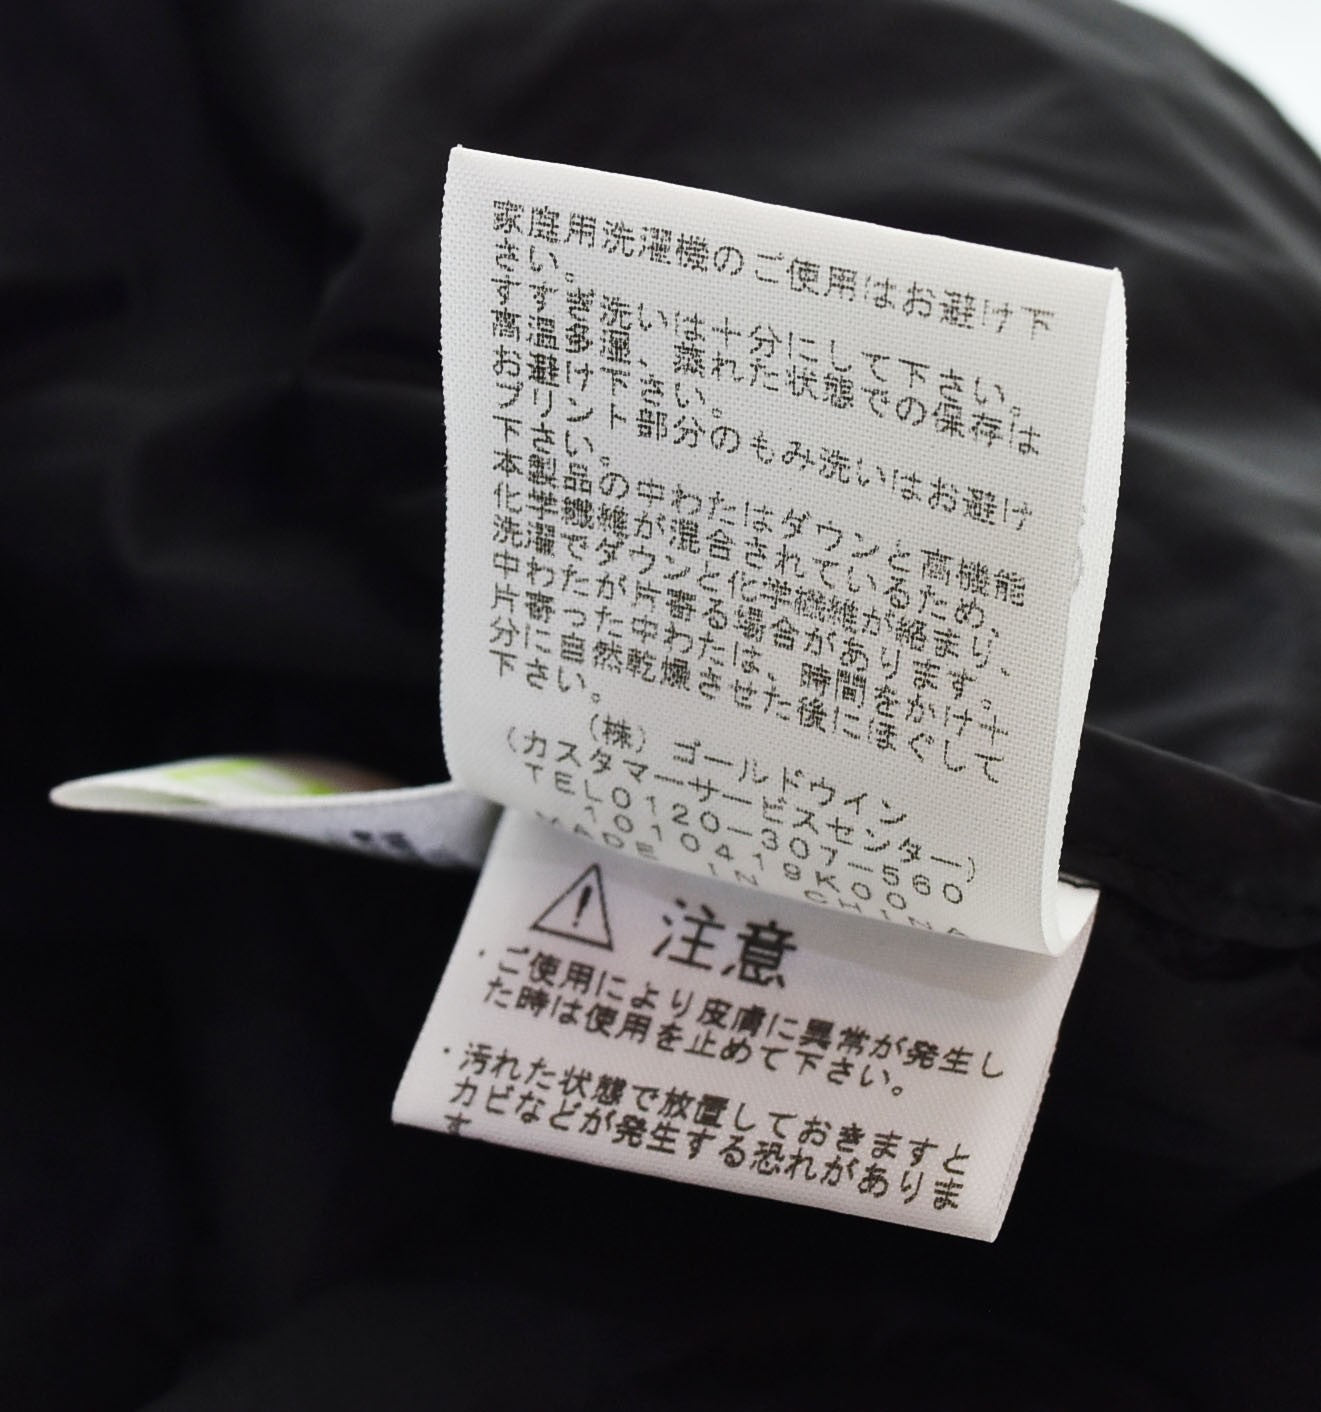 家庭用洗濯機のご使用はお避け下
さい。
すすぎ洗いは十分にして下さい。
高温多湿、蒸れた状態での保存は
お避け下さい。
プリント部分のもみ洗いはお避け
下さい。
本製品の中わたはダウンと高機能
化学繊維が混合されているため、
洗濯でダウンと化学繊維が絡まり、
中わたが片寄る場合があります。
片寄った中わたは、時間をかけ十
分に自然乾燥させた後にほぐして
下さい。
(株)ゴールドウイン
(カスタマーサービスセンター)
TEL0120-307-560
1010419K00
MADE IN CHINA
注意
・ご使用により皮膚に異常が発生し
た時は使用を止めて下さい。
・汚れた状態で放置しておきますと
カビなどが発生する恐れがありま
す